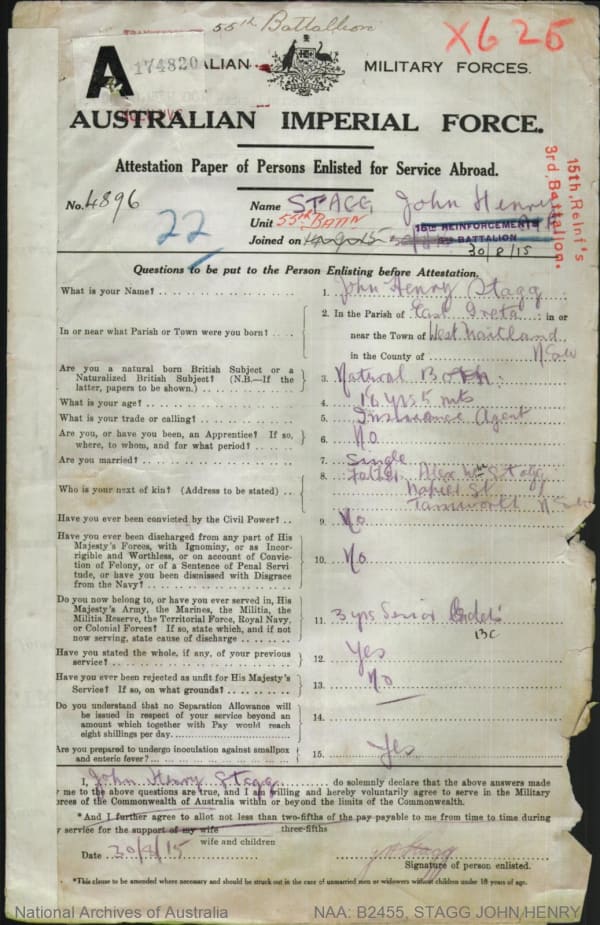 55th Battalion
X625
A
174820
ALIAN MILITARY FORCES.
AUSTRALIAN IMPERIAL FORCE.
Attestation Paper of Persons Enlisted for Service Abroad.
15th, Reinf's
3rd, Battalion.
No. 4896
Name STAGG John Henry
22
Unit 55th BATTN
15th REINFORCEMENTS
Joined on
BATTALION
30/8/15
Questions to be put to the Person Enlisting before Attestation.
What is your Name?
1. John Henry Stagg
In or near what Parish or Town were you born?
2. In the Parish of East Greta in or
near the Town of West Maitland
in the County of NSW
Are you a natural born British Subject or a
Naturalized British Subject? (N.B.—If the
latter, papers to be shown.)
3. Natural Born
What is your age?
4. 16 yrs 5 mts
What is your trade or calling?
5. Insurance Agent
Are you, or have you been, an Apprentice? If so,
where, to whom, and for what period?
6. No
Are you married?
7. Single
Who is your next of kin? (Address to be stated)
8. Father Alex Wm Stagg
Napier St
Tamworth NSW
Have you ever been convicted by the Civil Power?
9. No
Have you ever been discharged from any part of His
Majesty's Forces, with Ignominy, or as Incor-
rigible and Worthless, or on account of Convic-
tion of Felony, or of a Sentence of Penal Servi
tude, or have you been dismissed with Disgrace
from the Navy?
10. No
Do you now belong to, or have you ever served in, His
Majesty's Army, the Marines, the Militia, the
Militia Reserve, the Territorial Force, Royal Navy,
or Colonial Forces? If so, state which, and if not
now serving, state cause of discharge
11. 3 yrs Senior Cadets
Have you stated the whole, if any, of your previous
service?
12. Yes
Have you ever been rejected as unfit for His Majesty's
Service? If so, on what grounds?
13. No
Do you understand that no Separation Allowance will
be issued in respect of your service beyond an
amount which together with Pay would reach
eight shillings per day.
14.
Are you prepared to undergo inoculation against smallpox
and enteric fever?
15. Yes
I, John Henry Stagg do solemnly declare that the above answers made
me to the above questions are true, and I am willing and hereby voluntarily agree to serve in the Military
orces of the Commonwealth of Australia within or beyond the limits of the Commonwealth.
*And I further agree to allot not less than two-fifths of the pay payable to me from time to time during
three-fifths
y service for the support of my wife
wife and children
Date 30/8/15
J H Stagg
Signature of person enlisted.
*This clause to be amended where necessary and should be struck out in the case of unmarried men or widowers without children under 18 years of age.
National Archives of Australia
NAA: B2455, STAGG JOHN HENRY